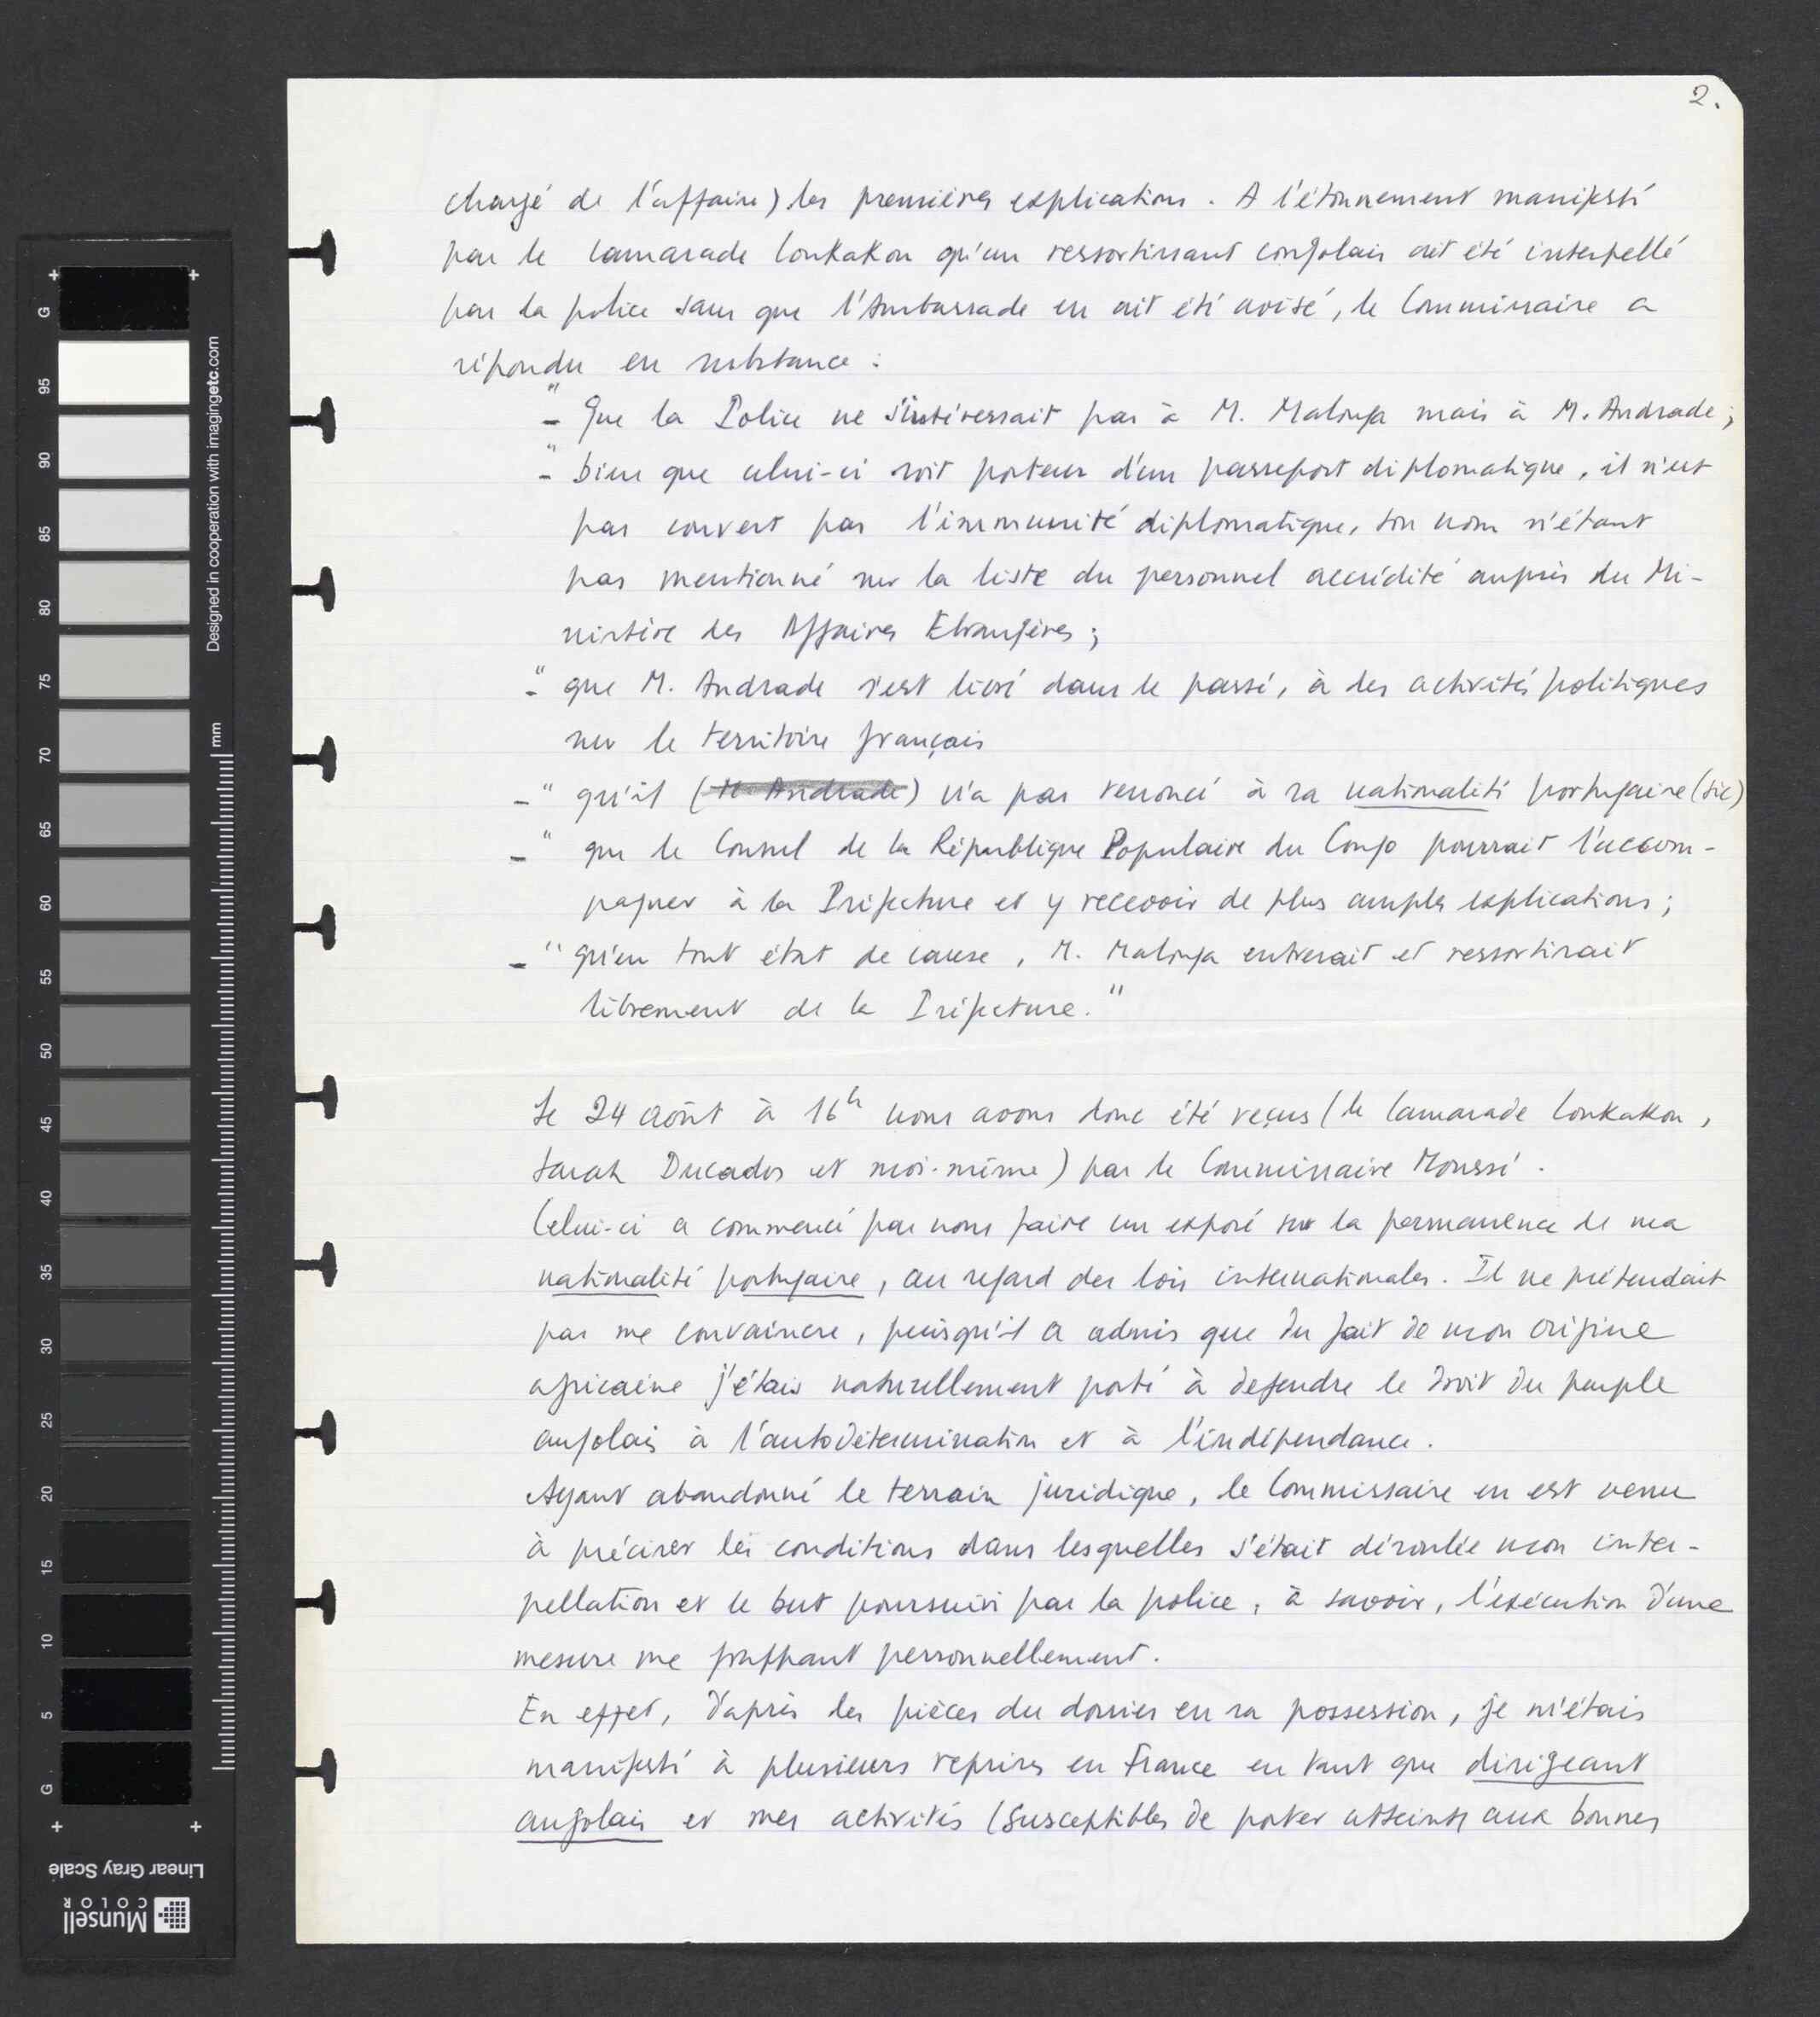 2.
chargé de l'affaire) les premières explications. A l'étonnement manifesté
par le camarade Loukakou qu'un ressortissant congolais ait été interpellé
par la police sans que l'Ambassade en ait été avisé, le Commissaire a
répondu en substance :
-" Que la Police ne s'intéressait pas à M. Malonga mais à M. Andrade ;
-" bien que celui-ci soit porteur d'un passeport diplomatique, il n'est
pas couvert par l'immunité diplomatique, son nom n'étant
pas mentionné sur la liste du personnel accrédité auprès du Mi-
nistère des Affaires Etrangères ;
-" que M. Andrade s'est livré dans le passé, à des activités politiques
sur le territoire français
-" qu'il (M. Andrade) n'a pas renoncé à sa nationalité portugaise (sic)
-" que le Consul de la République Populaire du Congo pourrait l'accom-
pagner à la Préfecture et y recevoir de plus amples explications ;
-" qu'en tout état de cause, M. Malonga entrerait et ressortirait
librement de la Préfecture."
Le 24 août à 16h nous avons donc été reçus (le camarade Loukakou,
Sarah Ducados et moi-même) par le Commissaire Moussé.
Celui-ci a commencé par nous faire un exposé sur la permanence de ma
nationalité portugaise, au regard des lois internationales. Il ne prétendait
pas me convaincre, puisqu'il a admis que du fait de mon origine
africaine j'étais naturellement porté à défendre le droit du peuple
angolais à l'autodétermination et à l'indépendance.
Ayant abandonné le terrain juridique, le Commissaire en est venu
à préciser les conditions dans lesquelles s'était déroulée mon inter-
pellation et le but poursuivi par la police, à savoir, l'exécution d'une
mesure me frappant personnellement.
En effet, d'après les pièces du dossier en sa possession, je m'étais
manifesté à plusieurs reprises en France en tant que dirigeant
angolais et mes activités (susceptibles de porter atteinte aux bonnes
Designed in cooperation with imagingetc.com
mm
G
95
90
85
80
75
70
65
60
55
50
45
40
35
30
25
20
15
10
5
G
Linear Gray Scale
Munsell
COLOR